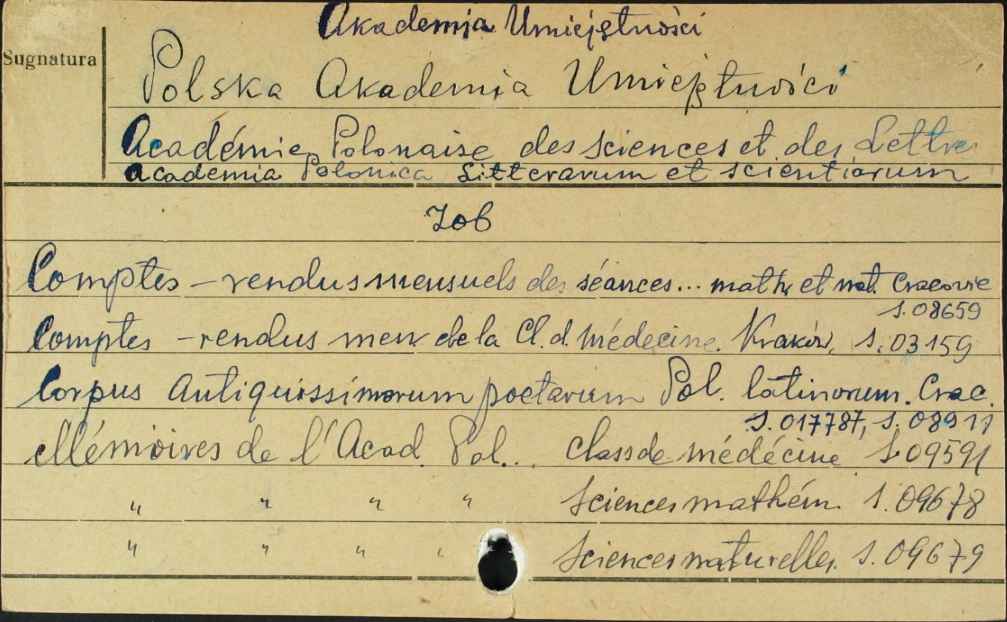 Akademja Umiejętności
Sugnatura
Polska Akademia Umiejętności
Académie Polonaise des sciences et des Lettres
Academia Polonica Litterarum et scientiarum
Comptes - rendus mensuels des séances... math et nat. Cracovie
S.08659
Comptes - rendus men de la Cl. d. Médecine. Kraków, S.03159
Corpus Antiquissimorum poetarum Pol. latinorum. Crac.
S.017787, S.08911
Mémoires de l'Acad. Pol... class de médécine S.09591
" " " " Sciences mathém. S.09678
" " " " Sciences naturelles. S.09679